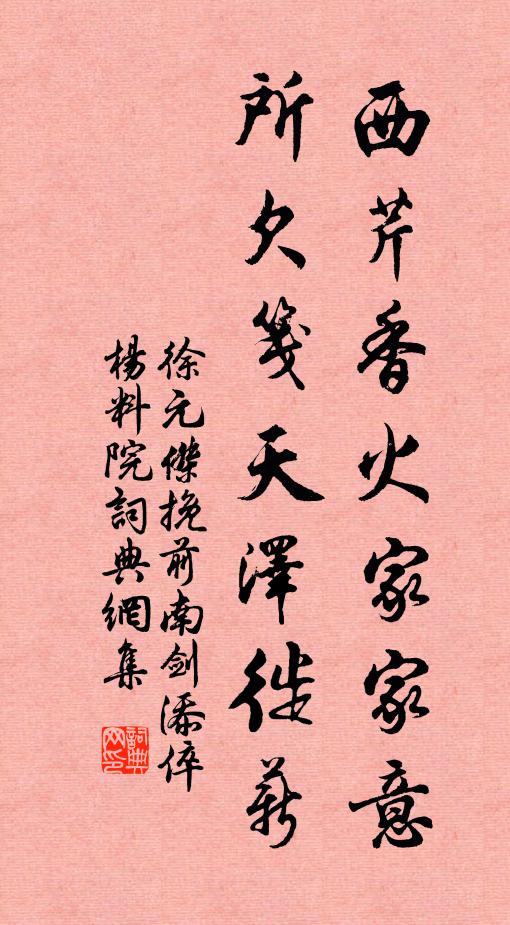 西芹香火家家意
所欠箋天澤徙薪
徐元傑挽前南劍添倅
楊料院詞典網集
詞典网印